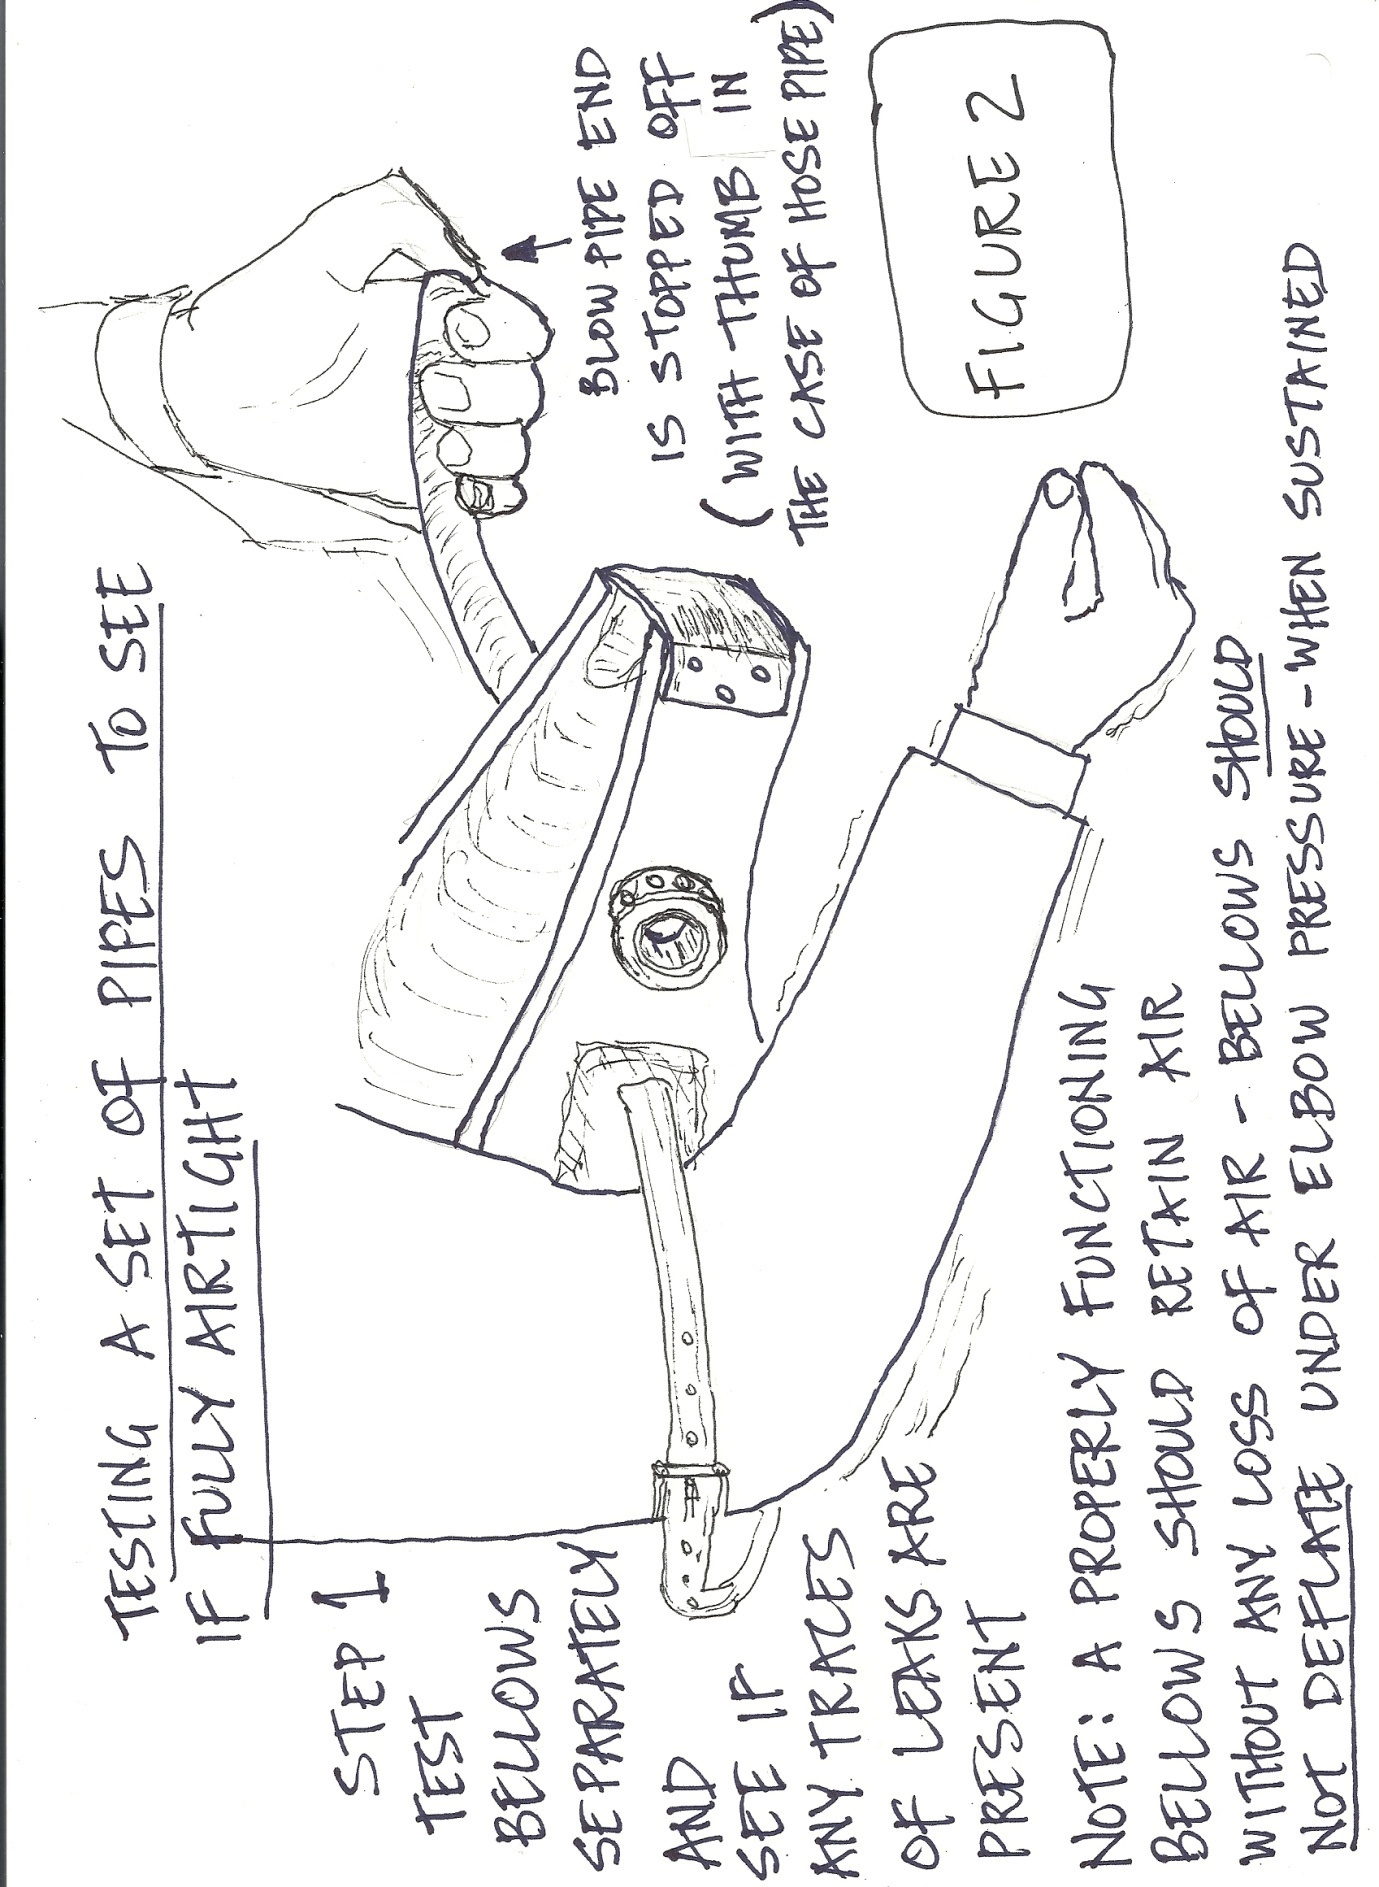 TESTING A SET OF PIPES TO SEE
IF FULLY AIRTIGHT
STEP 1
TEST
BELLOWS
SEPARATELY
AND
SEE IF
ANY TRACES
OF LEAKS ARE
PRESENT
BLOW PIPE END
IS STOPPED OFF
(WITH THUMB IN
THE CASE OF HOSE PIPE)
FIGURE 2
NOTE: A PROPERLY FUNCTIONING
BELLOWS SHOULD RETAIN AIR
WITHOUT ANY LOSS OF AIR - BELLOWS SHOULD
NOT DEFLATE UNDER ELBOW PRESSURE - WHEN SUSTAINED